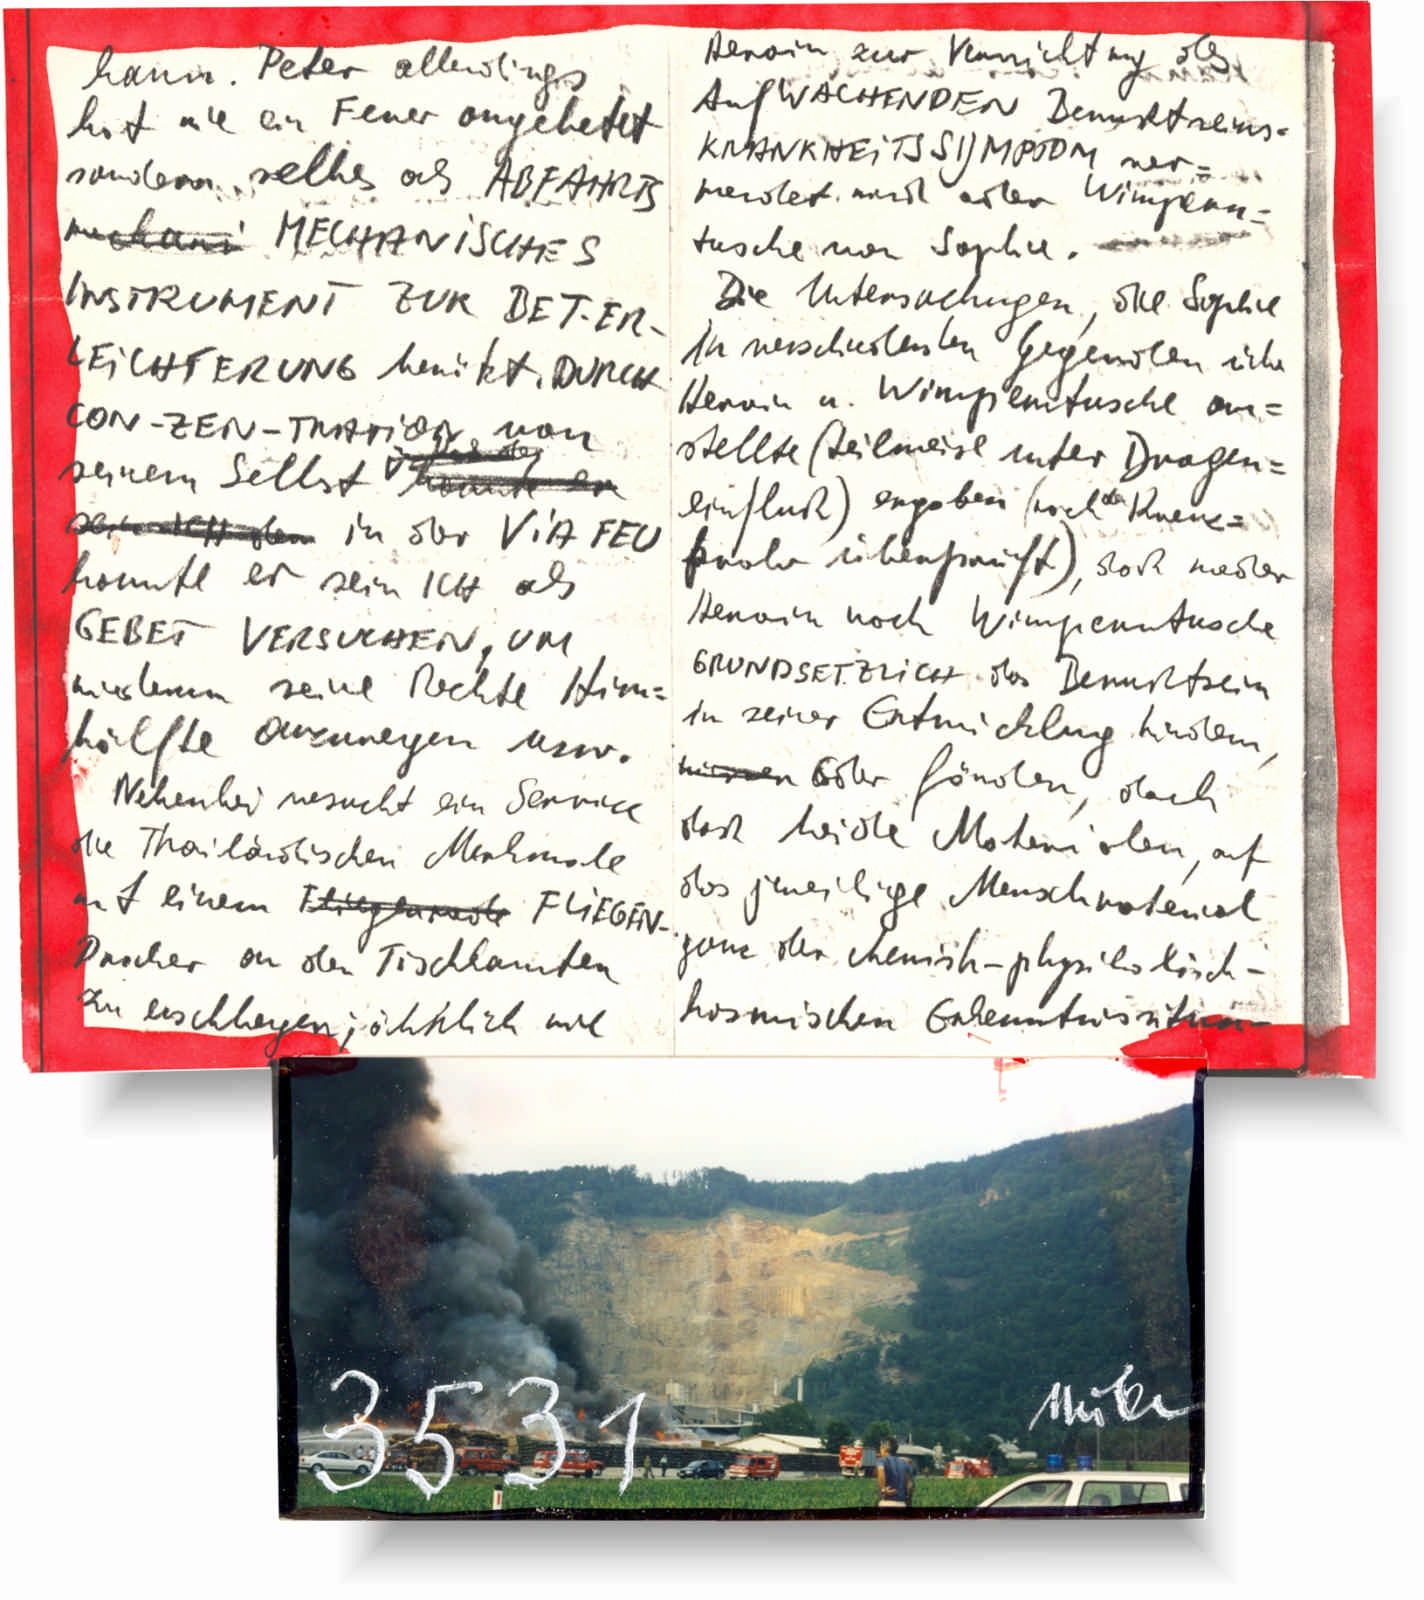 kann. Peter allerdings
hat nie ein Feuer angebetet
sondern selbes als ABFAHRTS
mechani MECHANiSCHES
INSTRUMENT ZUR BET-ER-
LEiCHTERUNG benützt. DURCH
CON-ZEN-TRATION von
seinem Selbst konnte er
sein ICH in der ViA FEU
konnte er sein ICH als
GEBET VERSUCHEN, UM
wiederum seine Rechte Hirn=
hälfte anzuregen usw.
Nebenbei versucht ein Service
die Thailändischen Merkmale
mit einem Fliegen FLiEGEN-
Pracker an den Tischkannten
zu erschlagen; ähnlich wie
Heroin zur Vernichtung des
AufWACHENDEN Bewustseins=
KRANKHEiTSSYMPTOM ver=
wendet wird oder Wimpern=
tusche von Sophie.
Die Untersuchungen, die Sophie
in verschiedensten Gegenden über
Heroin u. Wimperntusche an=
stellte (teilweise unter Drogen=
einfluß) ergaben (nach der Kreuz=
probe überprüft), daß weder
Heroin noch Wimperntusche
GRUNDSETZLiCH das Bewustsein
in seiner Entwicklung hindern,
oder fördern, doch
daß beide Materialen, auf
das jeweilige Menschmaterial
ganz der chemisch-physikalisch-
kosmischen Erkenntnissitua-
3531